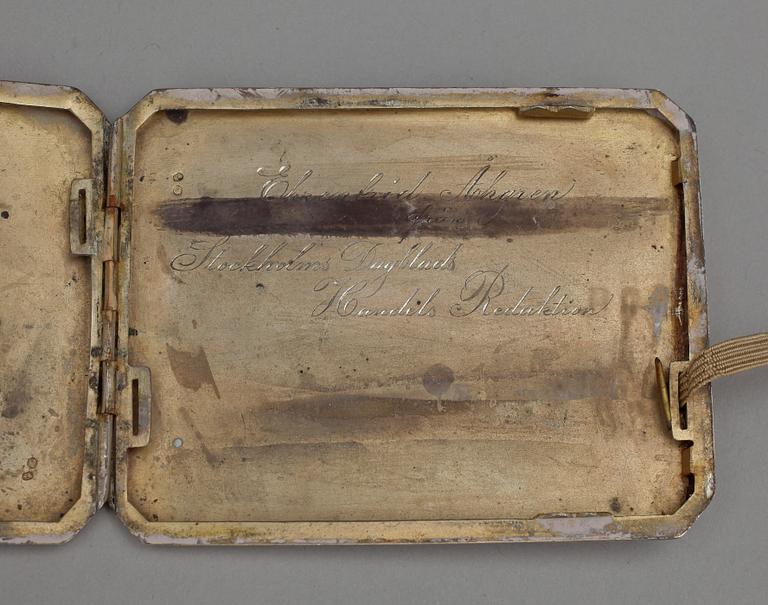 Eberhard Ahgren
från
Stockholms Dagblads
Handels Redaktion